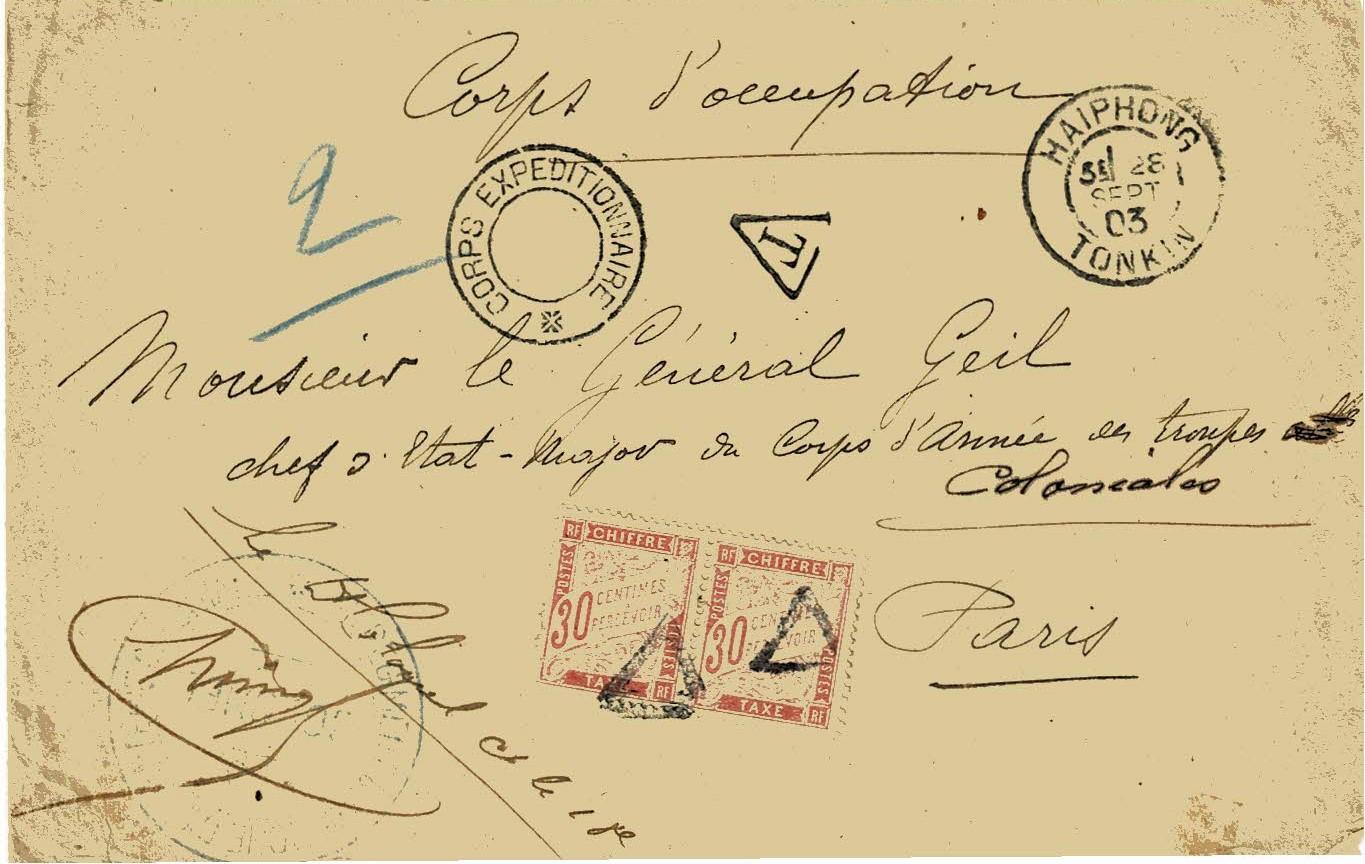 Corps d'occupation
HAIPHONG
28
SEPT
03
TONKIN
2
CORPS EXPEDITIONNAIRE
T
Monsieur le Général Geil
chef d'Etat-Major du Corps d'Armée des troupes
Coloniales
Paris
RF CHIFFRE
POSTES
30 CENTIMES
PERCEVOIR
POSTES
TAXE RF
RF CHIFFRE
POSTES
30 CENTIMES
PERCEVOIR
POSTES
TAXE RF
Le Colonel